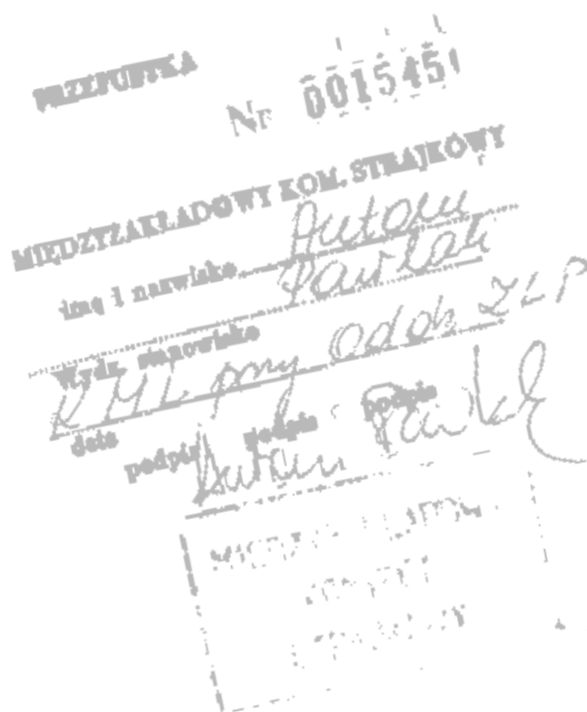 PRZEPUSTKA
Nr 001545
MIĘDZYZAKŁADOWY KOM. STRAJKOWY
imę i nazwisko Antoni
Pawlak
Wydz. stanowisko
KML przy Oddz ZLP
data podpis podpis podpis
Antoni Pawlak
MIĘDZYZAKŁADOWY
KOMITET
STRAJKOWY